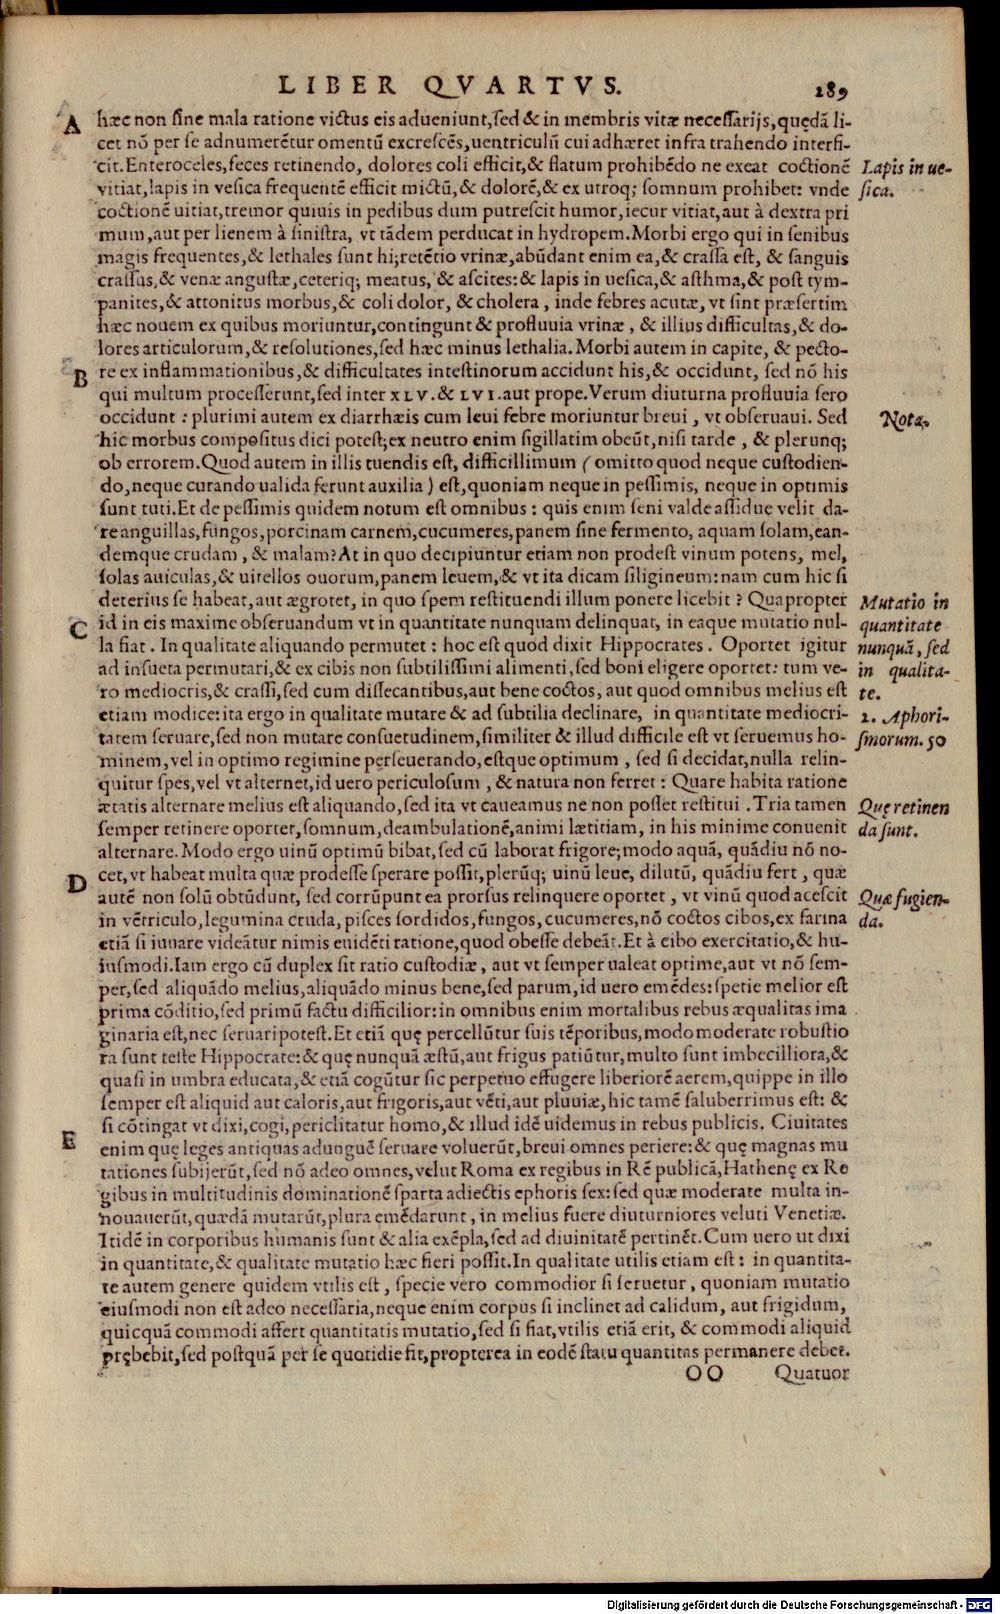 LIBER QVARTVS. 289
A hæc non sine mala ratione victus eis adueniunt, sed & in membris vitæ necessarijs, quędã li-
cet nõ per se adnumerẽtur omentũ excrescẽs, uentriculũ cui adhæret infra trahendo interfi-
cit. Enteroceles, feces retinendo, dolores coli efficit, & flatum prohibẽdo ne exeat coctionẽ
Lapis in ue-
vitiat, lapis in vesica frequentẽ efficit mictũ, & dolorẽ, & ex utroq; somnum prohibet: vnde
sica.
coctionẽ uitiat, tremor quiuis in pedibus dum putrescit humor, iecur vitiat, aut à dextra pri
mum, aut per lienem à sinistra, vt tãdem perducat in hydropem. Morbi ergo qui in senibus
magis frequentes, & lethales sunt hi; retẽtio vrinæ, abũdant enim ea, & crassa est, & sanguis
crassus, & venæ angustæ, ceteriq; meatus, & ascites: & lapis in uesica, & asthma, & post tym-
panites, & attonitus morbus, & coli dolor, & cholera, inde febres acutæ, vt sint præsertim
hæc nouem ex quibus moriuntur, contingunt & profluuia vrinæ, & illius difficultas, & do-
lores articulorum, & resolutiones, sed hæc minus lethalia. Morbi autem in capite, & pecto-
B re ex inflammationibus, & difficultates intestinorum accidunt his, & occidunt, sed nõ his
qui multum processerunt, sed inter XLV. & LVI. aut prope. Verum diuturna profluuia sero
occidunt: plurimi autem ex diarrhæis cum leui febre moriuntur breui, vt obseruaui. Sed
Nota.
hic morbus compositus dici potest; ex neutro enim sigillatim obeũt, nisi tarde, & plerunq;
ob errorem. Quod autem in illis tuendis est, difficillimum (omitto quod neque custodien-
do, neque curando ualida ferunt auxilia) est, quoniam neque in pessimis, neque in optimis
sunt tuti. Et de pessimis quidem notum est omnibus: quis enim seni valde assidue velit da-
re anguillas, fungos, porcinam carnem, cucumeres, panem sine fermento, aquam solam, ean-
demque crudam, & malam? At in quo decipiuntur etiam non prodest vinum potens, mel,
solas auiculas, & uitellos ouorum, panem leuem, & vt ita dicam siligineum: nam cum hic si
deterius se habeat, aut ægrotet, in quo spem restituendi illum ponere licebit? Quapropter
Mutatio in
C id in eis maxime obseruandum vt in quantitate nunquam delinquat, in eaque mutatio nul-
quantitate
la fiat. In qualitate aliquando permutet: hoc est quod dixit Hippocrates. Oportet igitur
nunquã, sed
ad insueta permutari, & ex cibis non subtilissimi alimenti, sed boni eligere oportet: tum ve-
in qualita-
ro mediocris, & crassi, sed cum dissecantibus, aut bene coctos, aut quod omnibus melius est
te.
etiam modice: ita ergo in qualitate mutare & ad subtilia declinare, in quantitate mediocri-
2. Aphori-
tatem seruare, sed non mutare consuetudinem, similiter & illud difficile est vt seruemus ho-
smorum. 50
minem, vel in optimo regimine perseuerando, estque optimum, sed si decidat, nulla relin-
quitur spes, vel vt alternet, id uero periculosum, & natura non ferret: Quare habita ratione
ætatis alternare melius est aliquando, sed ita vt caueamus ne non posset restitui. Tria tamen
Quę retinen
semper retinere oportet, somnum, deambulationẽ, animi lætitiam, in his minime conuenit
da sunt.
alternare. Modo ergo uinũ optimũ bibat, sed cũ laborat frigore; modo aquã, quãdiu nõ no-
D cet, vt habeat multa quæ prodesse sperare possit, plerũq; uinũ leue, dilutũ, quãdiu fert, quæ
autẽ non solũ obtũdunt, sed corrũpunt ea prorsus relinquere oportet, vt vinũ quod acescit
Quæ fugien-
in vẽtriculo, legumina cruda, pisces sordidos, fungos, cucumeres, nõ coctos cibos, ex farina
da.
etiã si iuuare videãtur nimis euidẽti ratione, quod obesse debeãt. Et à cibo exercitatio, & hu-
iusmodi. Iam ergo cũ duplex sit ratio custodiæ, aut vt semper ualeat optime, aut vt nõ sem-
per, sed aliquãdo melius, aliquãdo minus bene, sed parum, id uero emẽdes: spetie melior est
prima cõditio, sed primũ factu difficilior: in omnibus enim mortalibus rebus æqualitas ima
ginaria est, nec seruari potest. Et etiã quę percellũtur suis tẽporibus, modo moderate robustio
ra sunt teste Hippocrate: & quę nunquã æstũ, aut frigus patiũtur, multo sunt imbecilliora, &
quasi in umbra educata, & etiã cogũtur sic perpetuo effugere liberiorẽ aerem, quippe in illo
semper est aliquid aut caloris, aut frigoris, aut vẽti, aut pluuiæ, hic tamẽ saluberrimus est: &
si cõtingat vt dixi, cogi, periclitatur homo, & illud idẽ uidemus in rebus publicis. Ciuitates
E enim quę leges antiquas adunguẽ seruare voluerũt, breui omnes periere: & quę magnas mu
tationes subijerũt, sed nõ adeo omnes, velut Roma ex regibus in Rẽ publicã, Hathenę ex Re
gibus in multitudinis dominationẽ sparta adiectis ephoris sex: sed quæ moderate multa in-
nouauerũt, quædã mutarũt, plura emẽdarunt, in melius fuere diuturniores veluti Venetiæ.
Itidẽ in corporibus humanis sunt & alia exẽpla, sed ad diuinitatẽ pertinẽt. Cum uero ut dixi
in quantitate, & qualitate mutatio hæc fieri possit. In qualitate utilis etiam est: in quantita-
te autem genere quidem vtilis est, specie vero commodior si seruetur, quoniam mutatio
eiusmodi non est adeo necessaria, neque enim corpus si inclinet ad calidum, aut frigidum,
quicquã commodi affert quantitatis mutatio, sed si fiat, vtilis etiã erit, & commodi aliquid
prębebit, sed postquã per se quotidie fit, propterea in eodẽ statu quantitas permanere debet.
OO Quatuor
Digitalisierung gefördert durch die Deutsche Forschungsgemeinschaft - DFG